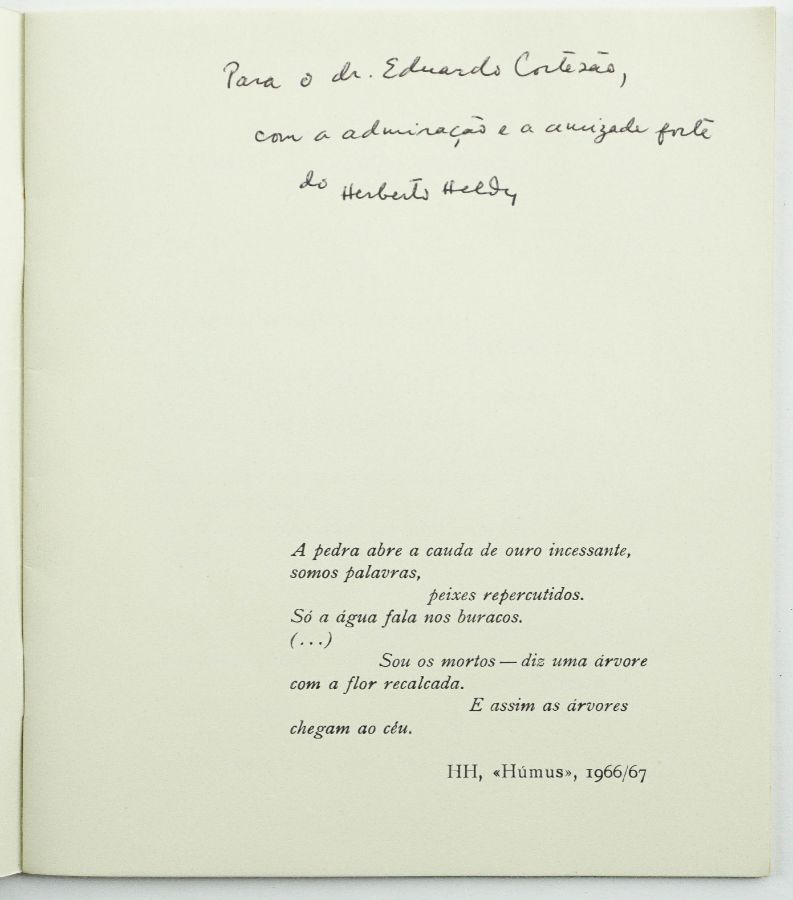 Para o dr. Eduardo Cortesão,
com a admiração e a amizade forte
do Herberto Helder
A pedra abre a cauda de ouro incessante,
somos palavras,
peixes repercutidos.
Só a água fala nos buracos.
(...)
Sou os mortos — diz uma árvore
com a flor recalcada.
E assim as árvores
chegam ao céu.
HH, «Húmus», 1966/67